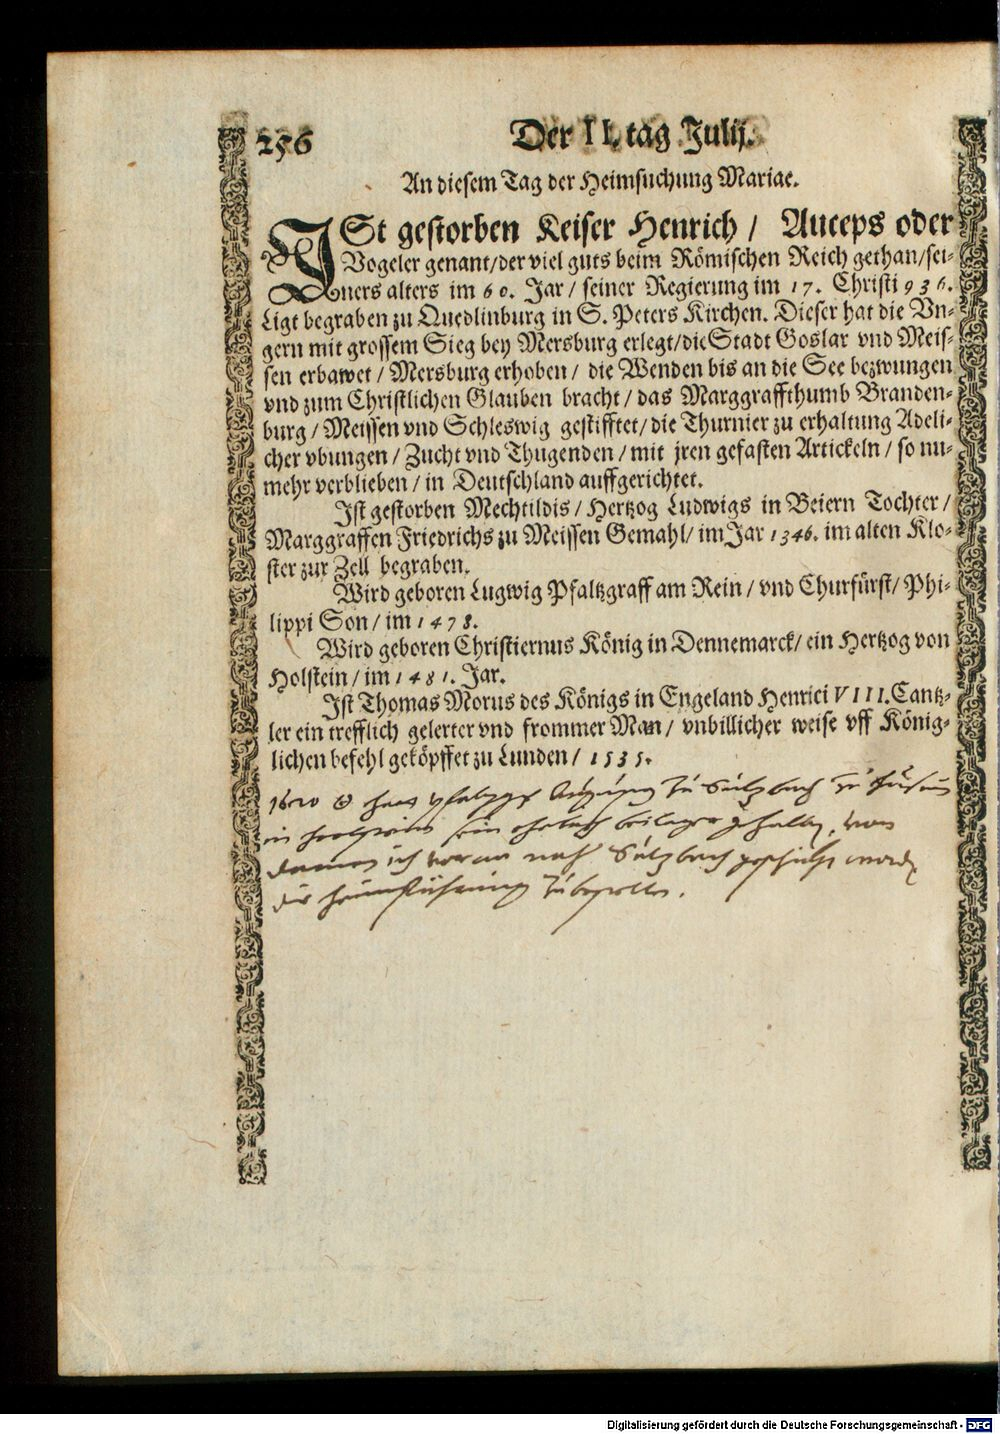 256
Der II. tag Julij.
An diesem Tag der Heimsuchung Mariae.
ISt gestorben Keiser Henrich / Auceps oder
Vogeler genant/der viel guts beim Römischen Reich gethan/sei-
ners alters im 60. Jar / seiner Regierung im 17. Christi 936.
Ligt begraben zu Quedlinburg in S. Peters Kirchen. Dieser hat die Vn-
gern mit grossem Sieg bey Mersburg erlegt/die Stadt Goslar vnd Meis-
sen erbawet / Mersburg erhoben / die Wenden bis an die See bezwungen
vnd zum Christlichen Glauben bracht / das Marggraffthumb Branden-
burg / Meissen vnd Schleswig gestifftet / die Thurnier zu erhaltung Adeli-
cher vbungen / Zucht vnd Thugenden / mit jren gefasten Artickeln / so nu-
mehr verblieben / in Deutschland auffgerichtet.
Ist gestorben Mechtildis / Hertzog Ludwigs in Beiern Tochter /
Marggraffen Friedrichs zu Meissen Gemahl/ im Jar 1346. im alten Klo-
ster zur Zell begraben.
Wird geboren Lugwig Pfaltzgraff am Rein / vnd Churfürst/ Phi-
lippi Son / im 1478.
Wird geboren Christiernus König in Dennemarck/ ein Hertzog von
Holstein / im 1481. Jar.
Ist Thomas Morus des Königs in Engeland Henrici VIII. Cantz-
ler ein trefflich gelerter vnd frommer Man / vnbillicher weise vff König-
lichen befehl geköpffet zu Lunden / 1535.
zu Sultzbach zu
in sein beilager
ich nach Sultzbach
die heimführung
Digitalisierung gefördert durch die Deutsche Forschungsgemeinschaft - DFG